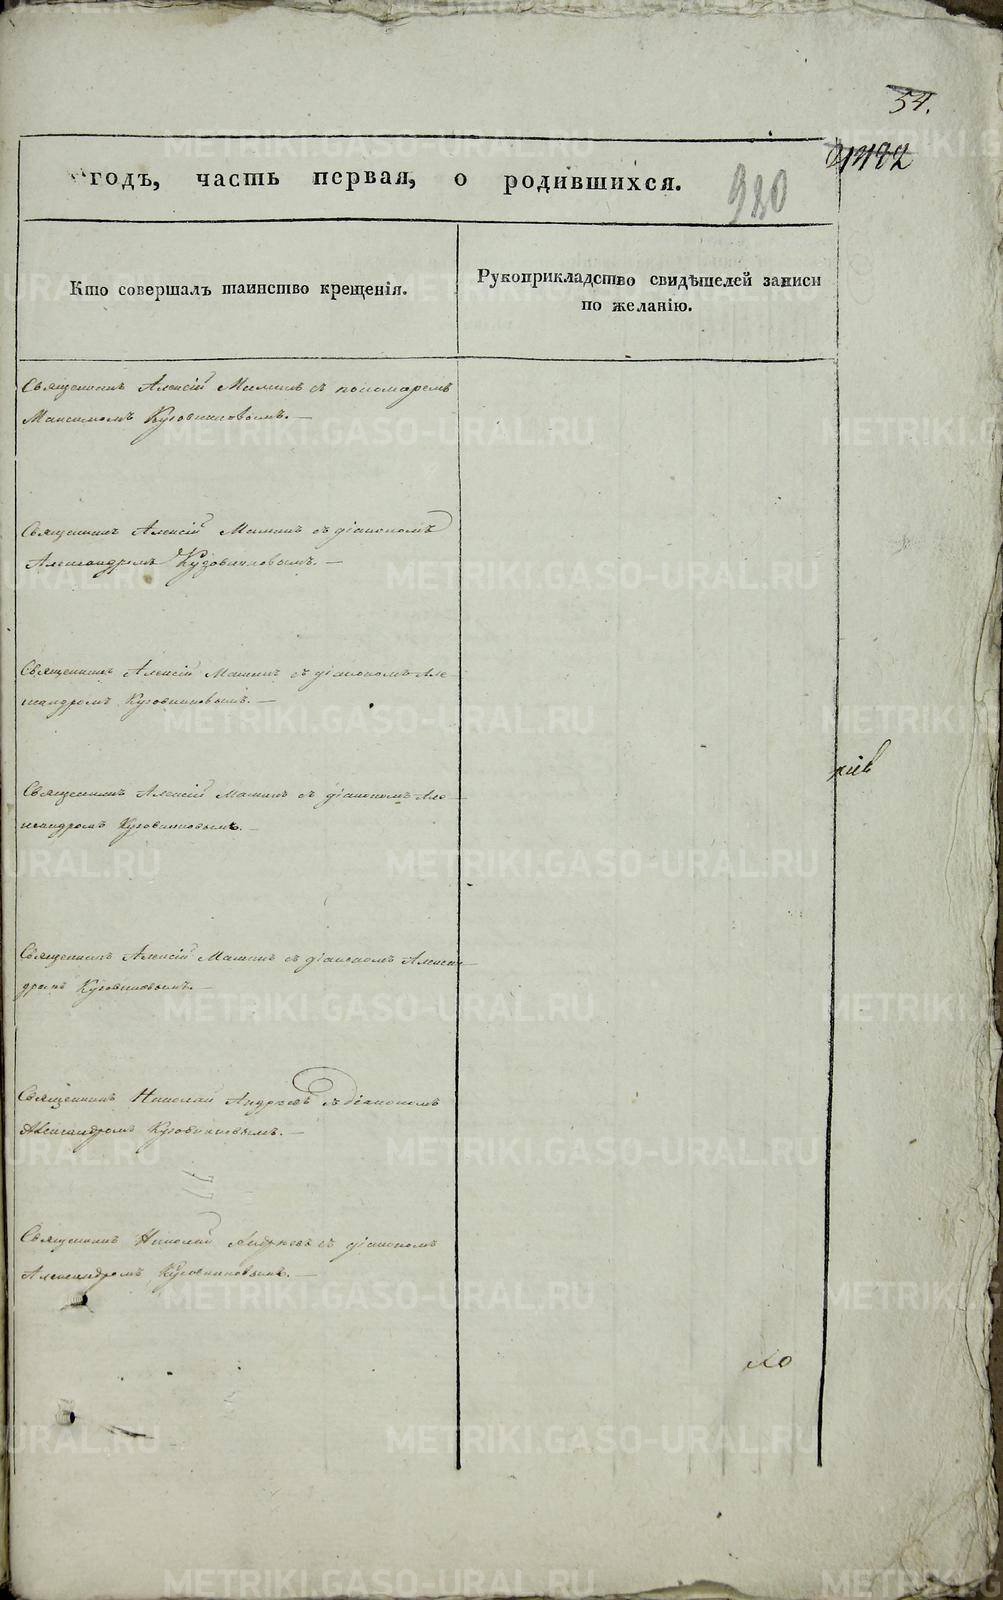 54.
годъ, часть первая, о родившихся.
980
Кто совершалъ таинство крещенія.
Рукоприкладство свидѣтелей записи
по желанію.
Священникъ Алексій Маминъ съ пономаремъ
Максимомъ Кузовниковымъ. —
Священникъ Алексій Маминъ съ діакономъ
Александромъ Кузовниковымъ. —
Священникъ Алексій Маминъ съ діакономъ Але
ксандромъ Кузовниковымъ. —
Священникъ Алексій Маминъ съ діакономъ Але
ксандромъ Кузовниковымъ. —
Священникъ Алексій Маминъ съ діакономъ Алексан
дромъ Кузовниковымъ. —
Священникъ Николай Андреевъ съ діакономъ
Александромъ Кузовниковымъ. —
Священникъ Николай Андреевъ съ діакономъ
Александромъ Кузовниковымъ. —
METRIKI.GASO-URAL.RU